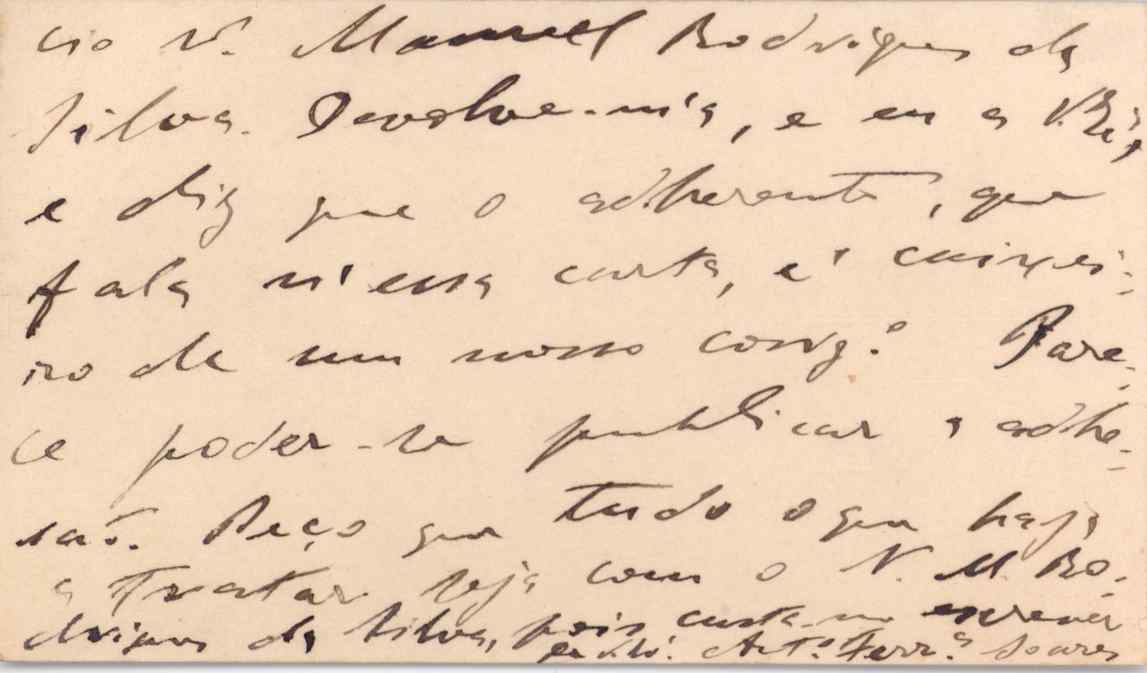 cio N. Manuel Rodrigues da
Silva. Devolve-m'a, e eu a
e diz que o adherente, que
fala n'essa carta, é caixei-
ro de um nosso corrg.º Pare-
ce poder-se publicar a adhe-
são. Peço que tudo o que haja
a tratar seja com o N. M. Ro-
drigues da Silva, pois custa-me escrever
Ant.º Ferr.ª Soares